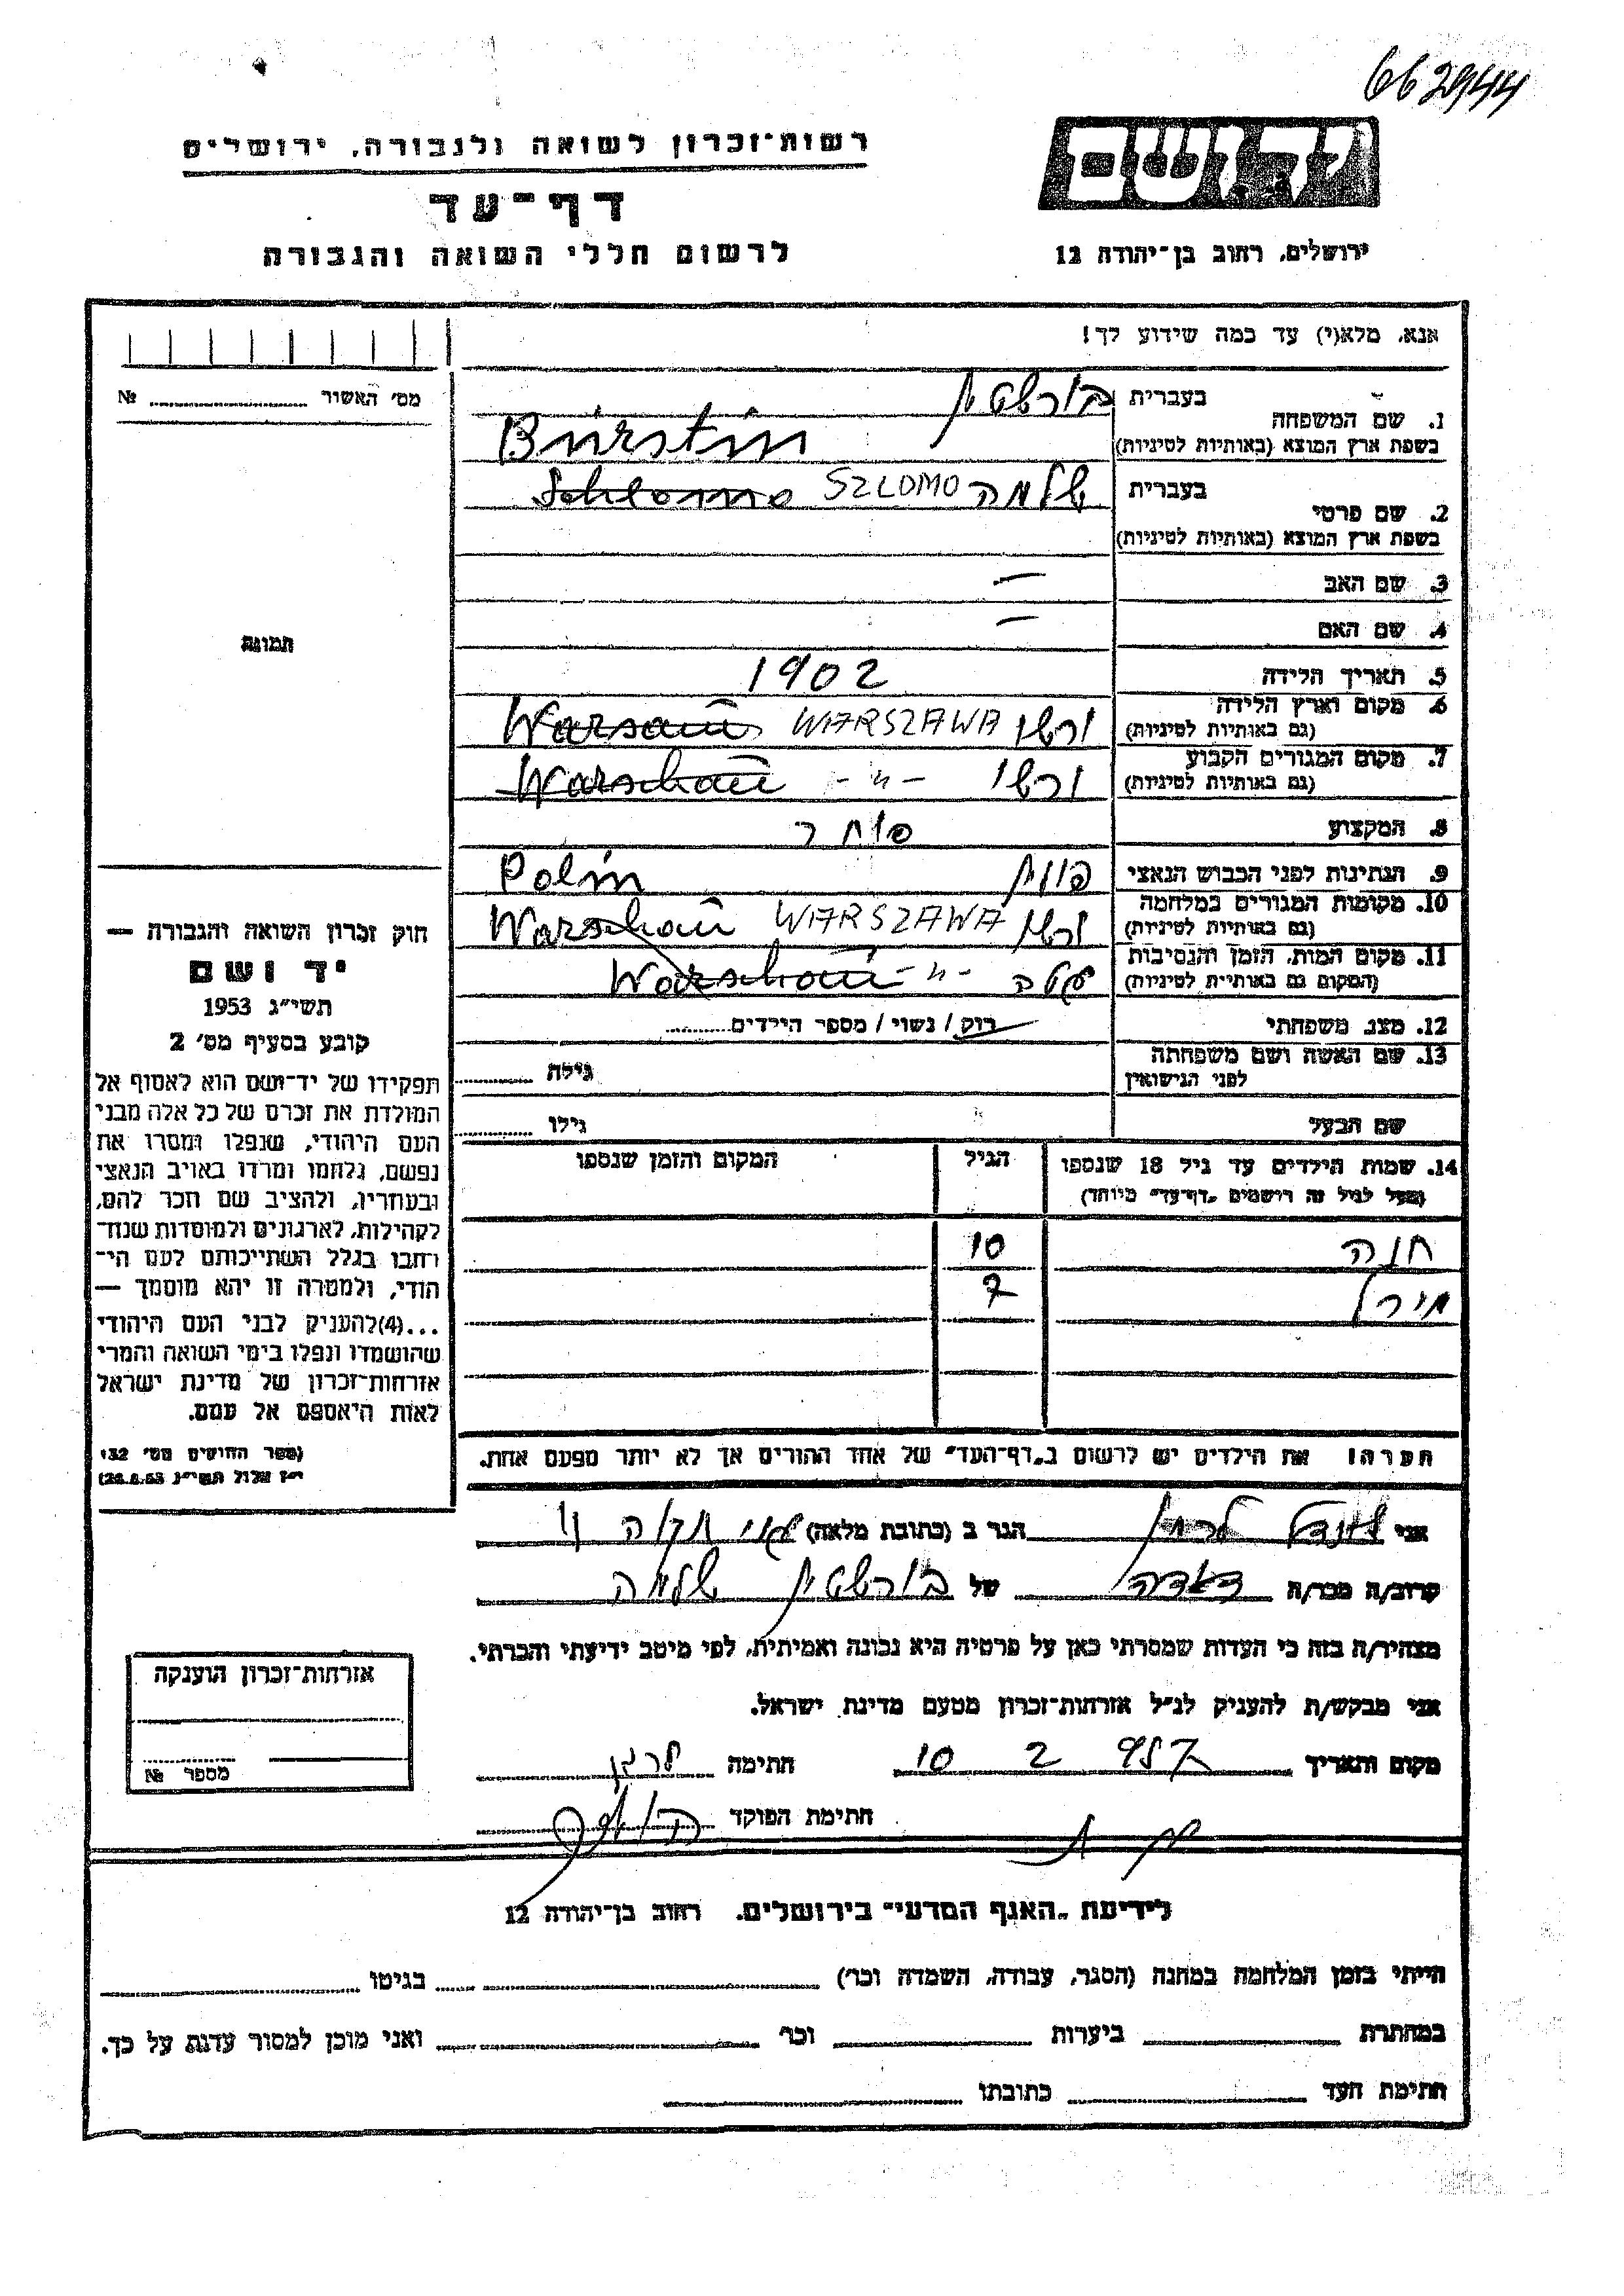 662944
רשות־זכרון לשואה ולגבורה, ירושלים
דף־עד
לרשום חללי השואה והגבורה
יד ושם
ירושלים, רחוב בן־יהודה 12
אנא, מלא(י) עד כמה שידוע לך!
מס׳ האשור № 
1. שם המשפחה בעברית בורשטין
בשפת ארץ המוצא (באותיות לטיניות) Búrstin
2. שם פרטי בעברית שלמה SZLOMO Schlomo
בשפת ארץ המוצא (באותיות לטיניות)
3. שם האב —
4. שם האם —
תמונה
5. תאריך הלידה 1902
6. מקום וארץ הלידה (גם באותיות לטיניות) ורשו WARSZAWA Warsaú
7. מקום המגורים הקבוע (גם באותיות לטיניות) ורשו -"- Warschaú
8. המקצוע סוחר
9. הנתינות לפני הכבוש הנאצי Polin
10. מקומות המגורים במלחמה (גם באותיות לטיניות) ורשו WARSZAWA Warschaú
11. מקום המות, הזמן והנסיבות (המקום גם באותיות לטיניות) -"- Warschaú
12. מצב משפחתי רוק / נשוי / מספר הילדים
13. שם האשה ושם משפחתה לפני הנישואין גילה
שם הבעל גילו
14. שמות הילדים עד גיל 18 שנספו הגיל המקום והזמן שנספו
(מעל לגיל זה רישמים „דף־עד״ מיוחד)
חנה 10
מירל 7
הערה! את הילדים יש לרשום ב„דף־העד״ של אחד ההורים אך לא יותר מפעם אחת.
חוק זכרון השואה והגבורה —
יד ושם
תשי״ג 1953
קובע בסעיף מס׳ 2
תפקידו של יד־ושם הוא לאסוף אל
המולדת את זכרם של כל אלה מבני
העם היהודי, שנפלו ומסרו את
נפשם, נלחמו ומרדו באויב הנאצי
ובעוזריו, ולהציב שם וזכר להם,
לקהילות, לארגונים ולמוסדות שנח־
רחבו בגלל השתייכותם לעם הי־
הודי, ולמטרה זו יהא מוסמך —
...(4)להעניק לבני העם היהודי
שהושמדו ונפלו בימי השואה והמרי
אזרחות־זכרון של מדינת ישראל
לאות היאספם אל עמם.
(ספר החוקים מס׳ 132
י״ז אלול תשי״ג 28.8.53)
אני הגר ב (כתובת מלאה)
קרוב/ה מכר/ה של בורשטין שלמה
מצהיר/ה בזה כי העדות שמסרתי כאן על פרטיה היא נכונה ואמיתית, לפי מיטב ידיעתי והכרתי.
אני מבקש/ת להעניק לנ״ל אזרחות־זכרון מטעם מדינת ישראל.
מקום ותאריך 10 2 חתימה
חתימת הפוקד
אזרחות־זכרון הוענקה
מספר №
לידיעת „האגף המדעי״ בירושלים, רחוב בן־יהודה 12
הייתי בזמן המלחמה במחנה (הסגר, עבודה, השמדה וכו׳) בגיטו
במחתרת ביערות וכו׳ ואני מוכן למסור עדות על כך.
חתימת העד כתובתו